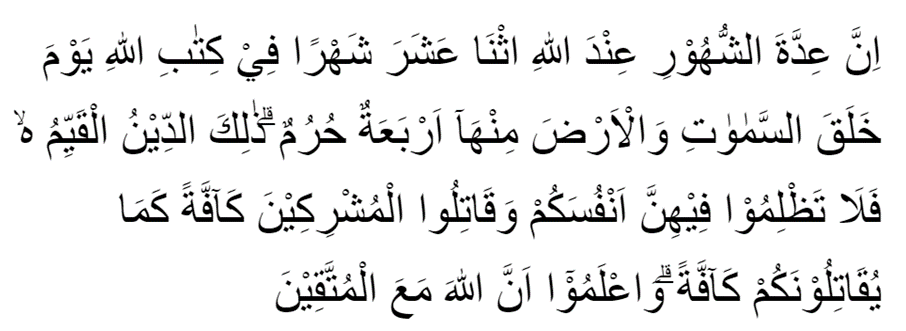 اِنَّ عِدَّةَ الشُّهُوْرِ عِنْدَ اللهِ اثْنَا عَشَرَ شَهْرًا فِيْ كِتٰبِ اللهِ يَوْمَ
خَلَقَ السَّمٰوٰتِ وَالْاَرْضَ مِنْهَآ اَرْبَعَةٌ حُرُمٌ ۗذٰلِكَ الدِّيْنُ الْقَيِّمُ ەۙ
فَلَا تَظْلِمُوْا فِيْهِنَّ اَنْفُسَكُمْ وَقَاتِلُوا الْمُشْرِكِيْنَ كَاۤفَّةً كَمَا
يُقَاتِلُوْنَكُمْ كَاۤفَّةً ۗوَاعْلَمُوْٓا اَنَّ اللهَ مَعَ الْمُتَّقِيْنَ